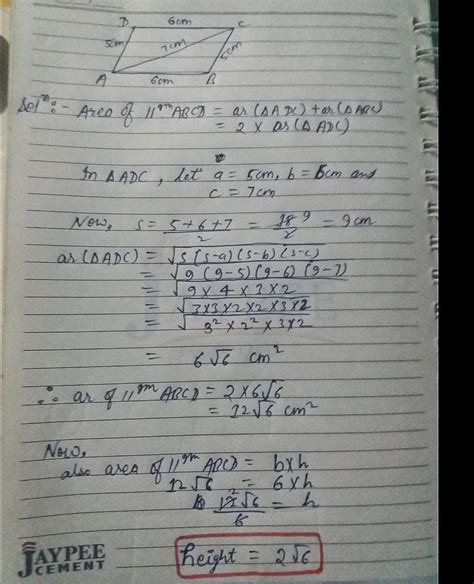 D 6cm C
5cm 7cm 5cm
A 6cm B
Solⁿ:- Area of ||gm ABCD = ar(ΔADC) + ar(ΔABC)
= 2 × ar(ΔADC)
In ΔADC, let a = 5cm, b = 6cm and
c = 7cm
Now, s = 5+6+7/2 = 18 9/2 = 9cm
ar(ΔADC) = √s(s-a)(s-b)(s-c)
= √9(9-5)(9-6)(9-7)
= √9×4×3×2
= √3×3×2×2×3×2
= √3²×2²×3×2
= 6√6 cm²
∴ ar of ||gm ABCD = 2×6√6
= 12√6 cm²
Now,
also area of ||gm ABCD = b×h
12√6 = 6×h
12 2√6/6 = h
height = 2√6
JAYPEE
CEMENT